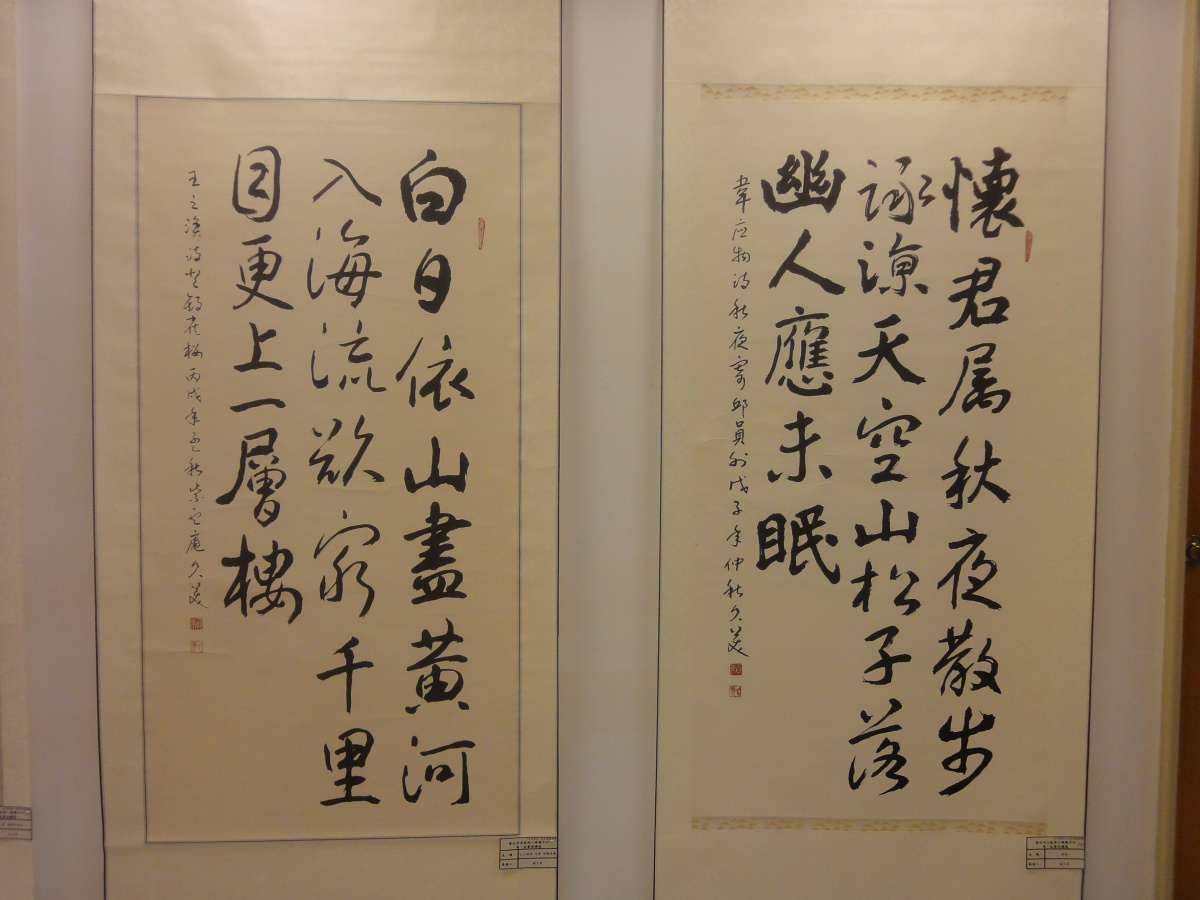 懷君属秋夜散步
詠涼天空山松子落
幽人應未眠
韋应物詩秋夜寄邱員外戊子年仲秋久美
白日依山盡黄河
入海流欲窮千里
目更上一層樓
王之渙詩登鸛雀樓丙戌年孟秋崇庵久美